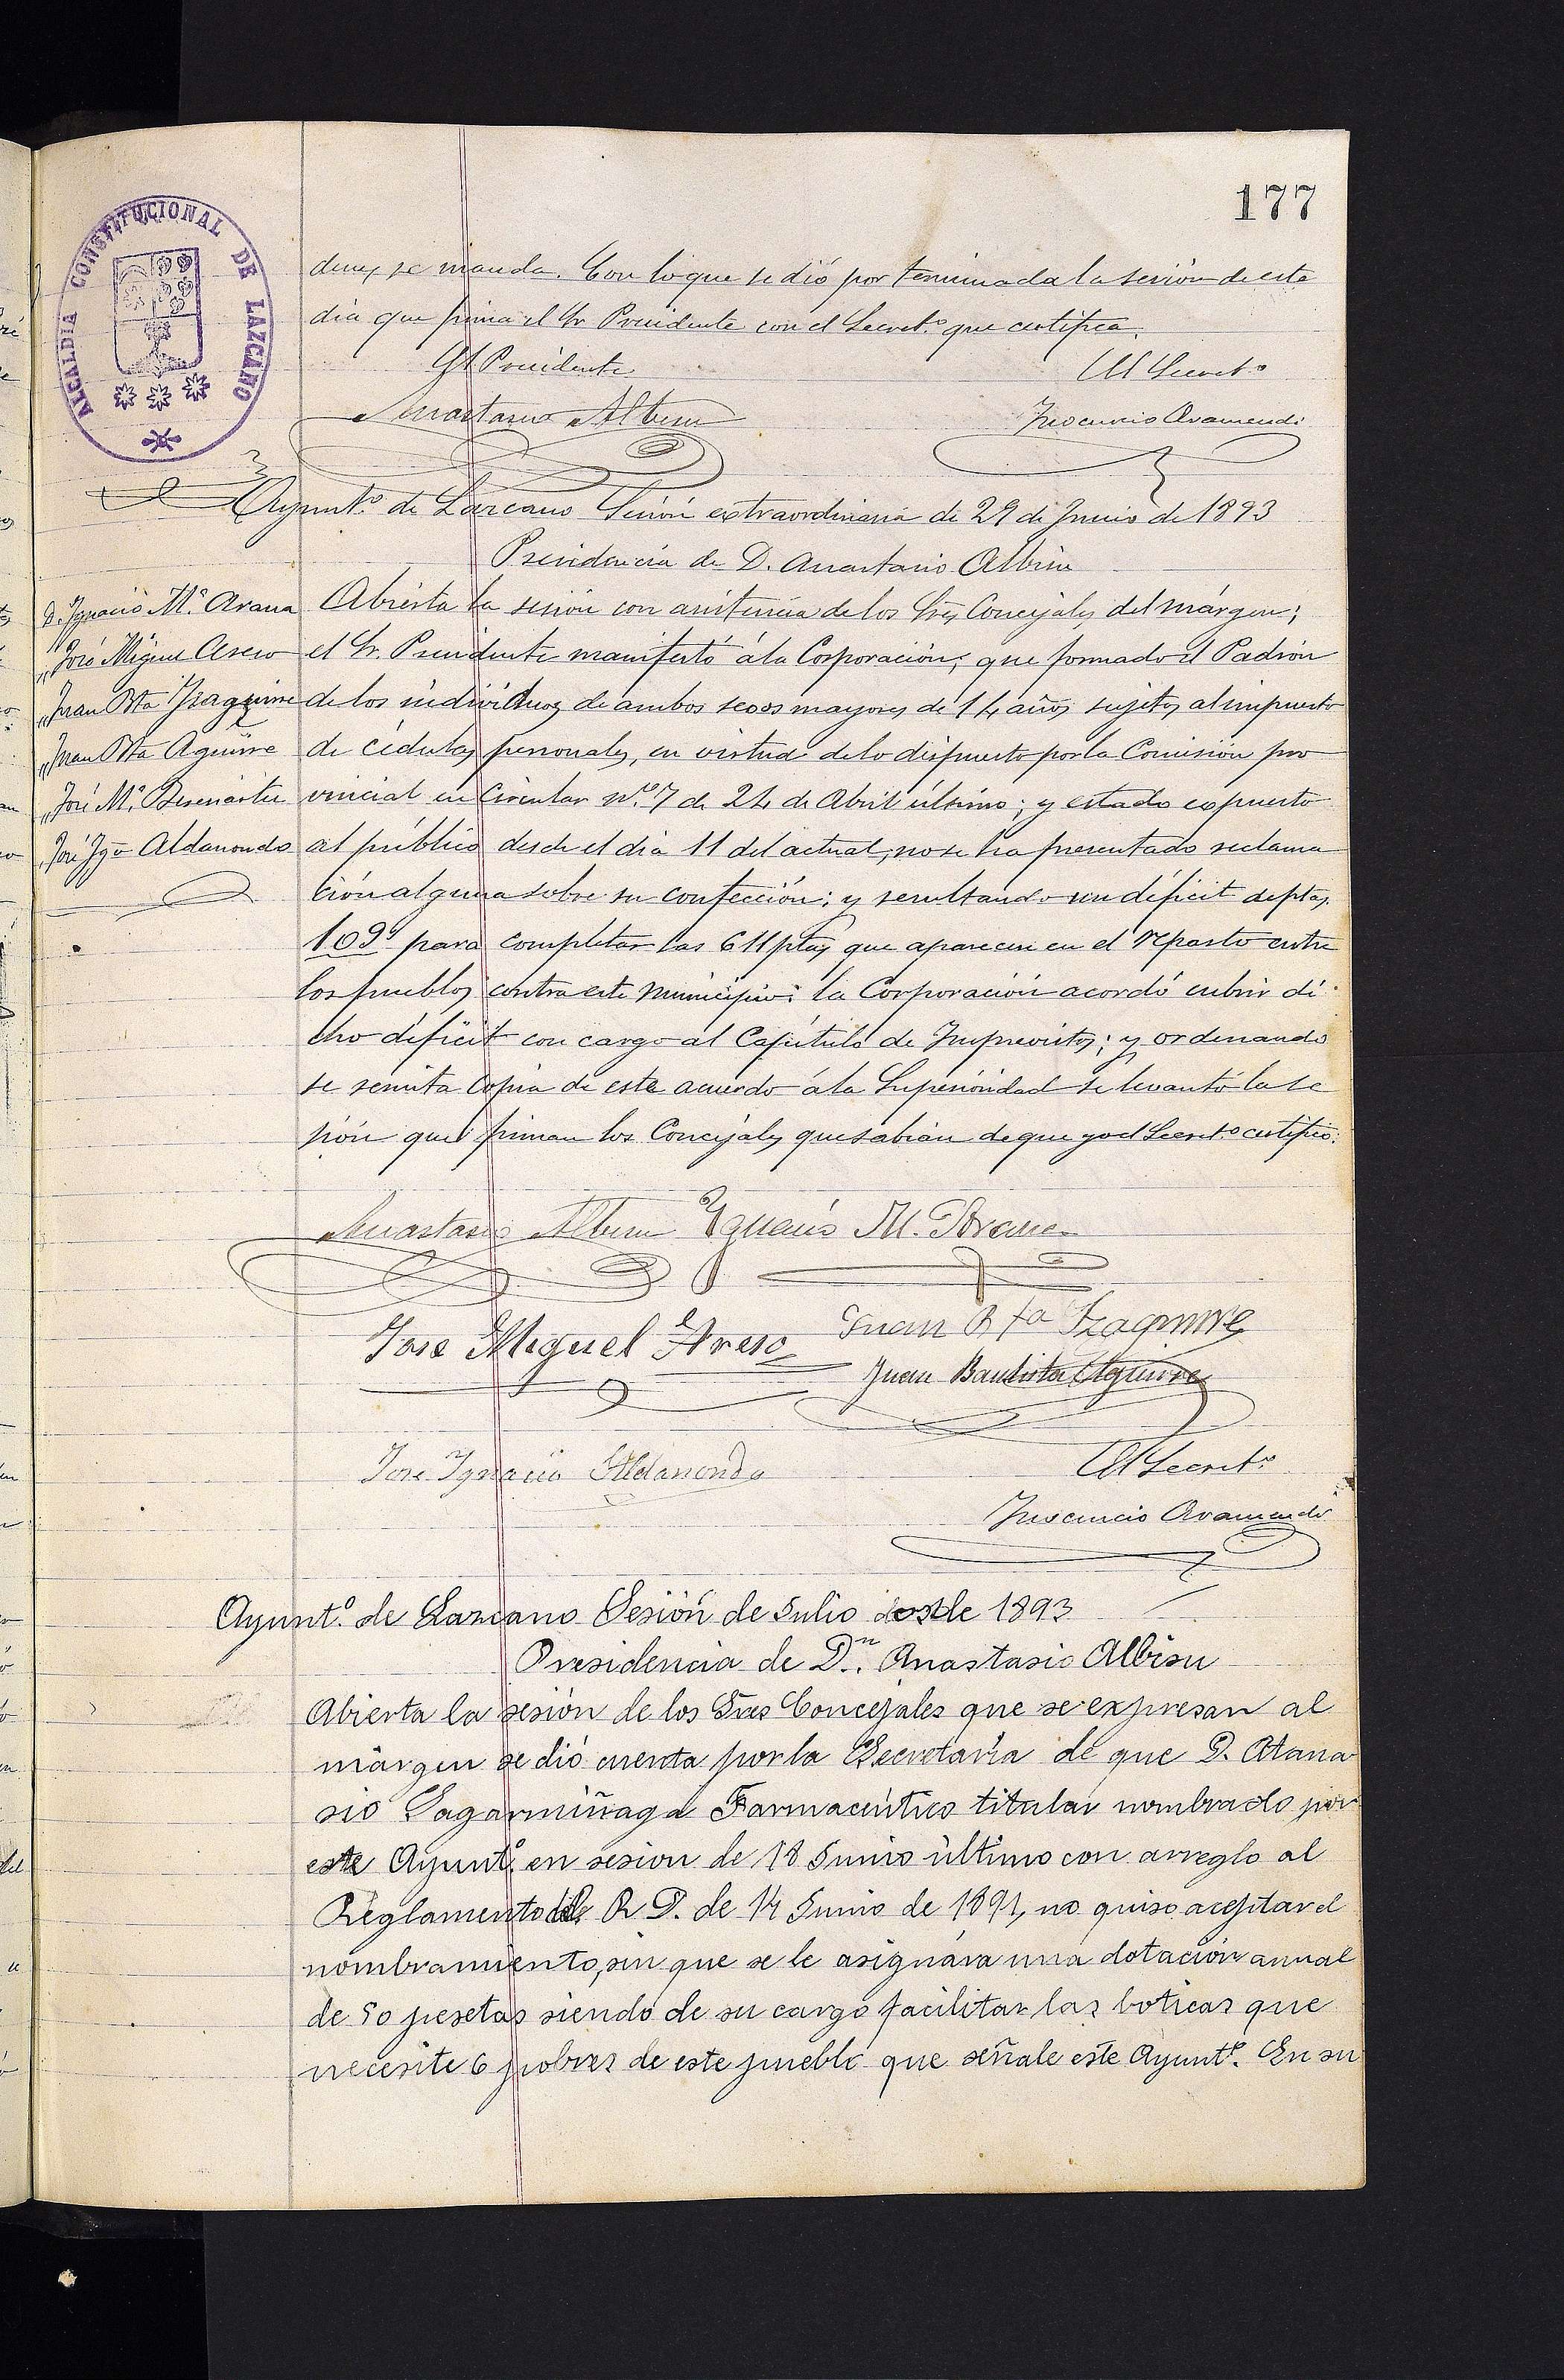 177
ALCALDIA CONSTITUCIONAL DE LAZCANO
denes se manda. Con lo que se dió por terminada la sesión de este
dia que firma el Sr Presidente con el Secret.º que certifica.
El Presidente
El Secret.º
Anastasio Albisu
Inocencio Aramendi
Ayunt.º de Lazcano Sesión extraordinaria de 29 de Junio de 1893
Presidencia de D. Anastasio Albisu
D. Ignacio M.ª Arana
„ José Miguel Areso
„ Juan Bta Yzaguirre
„ Juan Bta Aguirre
„ José M.ª
„ José Ygo Aldanondo
Abierta la sesión con asistencia de los Sres Concejales del márgen;
el Sr. Presidente manifestó á la Corporación, que formado el Padrón
de los individuos de ambos sexos mayores de 14 años sujetos al impuesto
de cédulas personales, en virtud de lo dispuesto por la Comisión pro
vincial en Circular nº 7 de 24 de Abril último; y estado expuesto
al público desde el dia 11 del actual, no se ha presentado reclama
ción alguna sobre su confección; y resultando un déficit de ptas.
109 para completar las 611 ptas que aparecen en el reparto entre
los pueblos contra este Municipio: la Corporación acordó cubrir di
cho déficit con cargo al Capítulo de Imprevistos; y ordenando
se remita copia de este acuerdo á la Superioridad se levantó la se
sión que firman los Concejales que sabian de que yo el Secret.º certifico:
Anastasio Albisu Ygnacio M. Arana
Jose Miguel Areso
Juan Bta Yzaguirre
Juan Bautista Aguirre
Jose Ygnacio Aldanondo
El Secret.º
Inocencio Aramendi
Ayunt.º de Lazcano Sesión de Julio dos de 1893
Presidencia de D.n Anastasio Albisu
Abierta la sesión de los Sres Concejales que se expresan al
márgen se dió cuenta por la Secretaría de que D. Atana
sio Sagarmiñaga Farmacéutico titular nombrado por
este Ayunt.º en sesion de 18 Junio último con arreglo al
Reglamento del R D. de 14 Junio de 1891, no quiso aceptar el
nombramiento, sin que se le asignára una dotación anual
de 50 pesetas siendo de su cargo facilitar las boticas que
necesite 6 pobres de este pueblo que señale este Ayuntº. En su